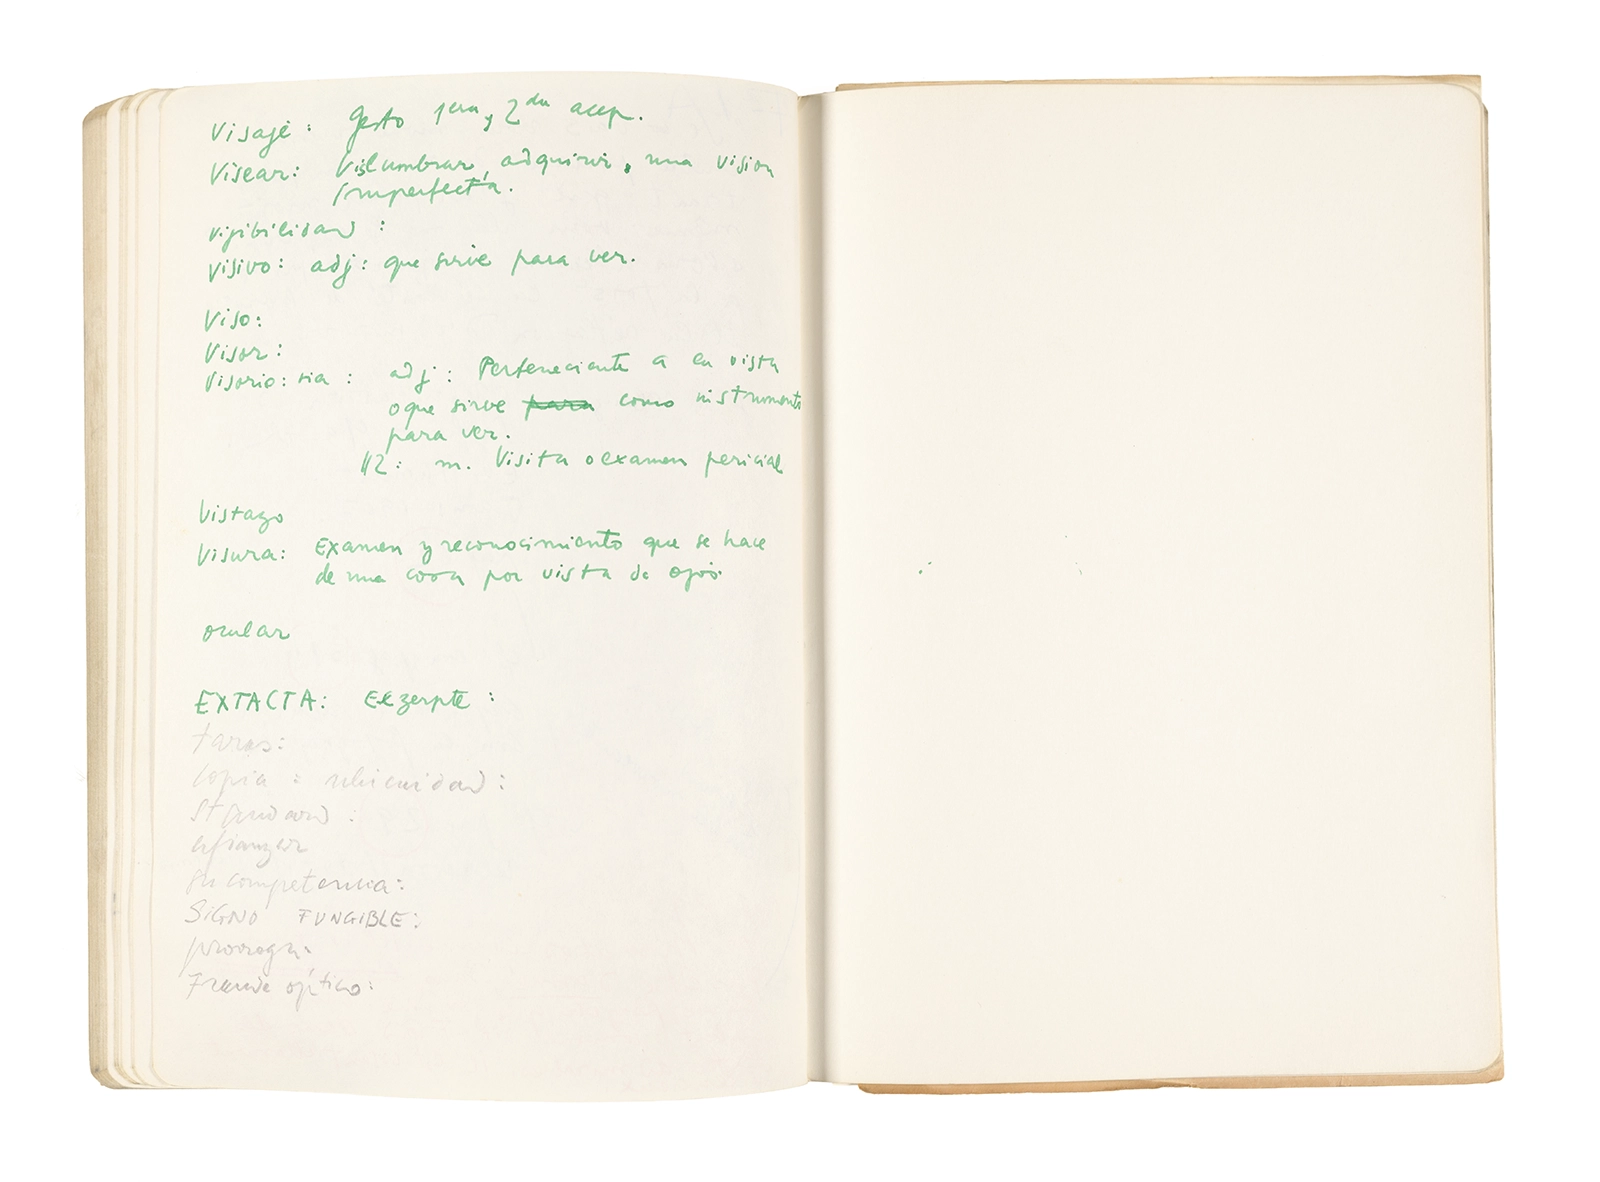 Visaje: Gesto 1era y 2da acep.
Visear: Vislumbrar, adquirir, una vision
imperfecta.
visibilidad:
visivo: adj: que sirve para ver.
Viso:
Visor:
Visorio: ria: adj: Perteneciente a la vista
o que sirve para como instrumento
para ver.
112: m. Visita o examen pericial
Vistazo
Visura: Examen y reconocimiento que se hace
de una cosa por vista de ojos
ocular
EXTACTA: Exzerpte:
taras:
copia: ubicuidad:
standard:
afianzar
su competencia:
SIGNO FUNGIBLE:
prorroga:
Fraude óptico: